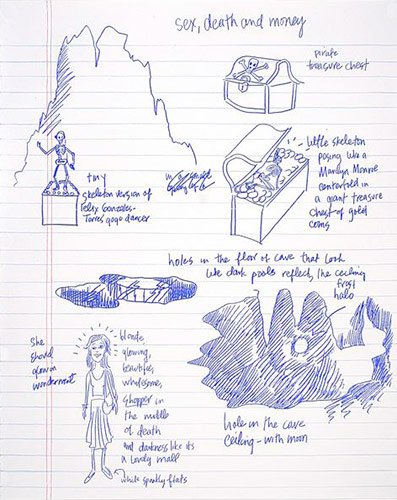 sex, death and money
pirate
treasure chest
little skeleton
posing like a
Marilyn Monroe
centerfold in
a giant treasure
chest of gold
coins
tiny
skeleton version of
Felix Gonzales-
Torres gogo dancer
holes in the floor of cave that look
like dark pools reflect, the ceiling
frost
halo
She
should
glow in
wonderment
blonde,
glowing,
beautiful,
wholesome,
shopper in
the middle
of death
and darkness like its
a lovely mall
white sparkly flats
hole in the cave
ceiling - with moon